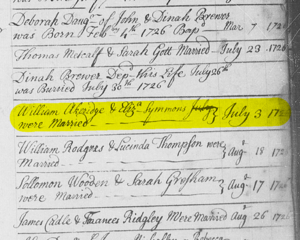 Deborah Daug.r of John, & Dinah Brewer
was Born Feb.ry 14th 1726 Bap.— Mar 7 172
Thomas Metcalf & Sarah Gott Married— July 23 172
Dinah Brewer Dep. this Life July 26th
was Burried July 1726
William & Eliz. Symmons } July 3 172
were Married
William Rodgers & Lucinda Thompson were } Aug.t 18 172
Married
Sollomon Wooden & Sarah Gresham } Aug.t 17 172
were Married
James Cadle & Frances Ridgley Were Married Aug 26 172